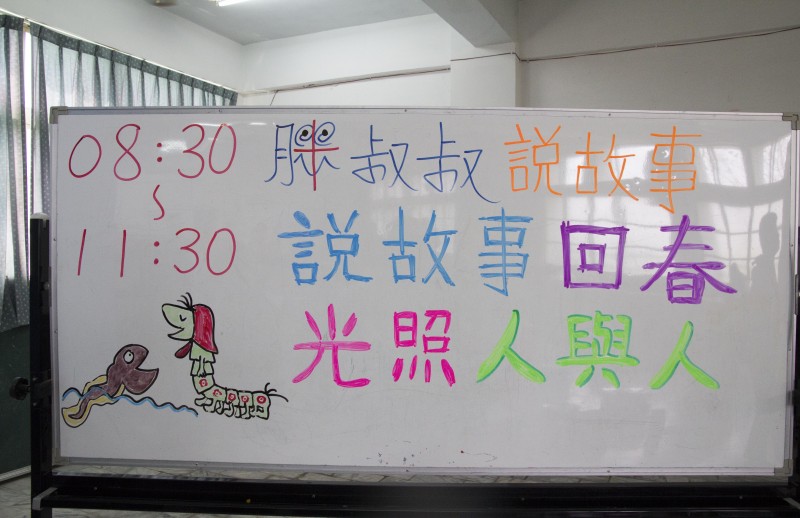 08:30 胖叔叔說故事
~
11:30 說故事回春
光照人與人